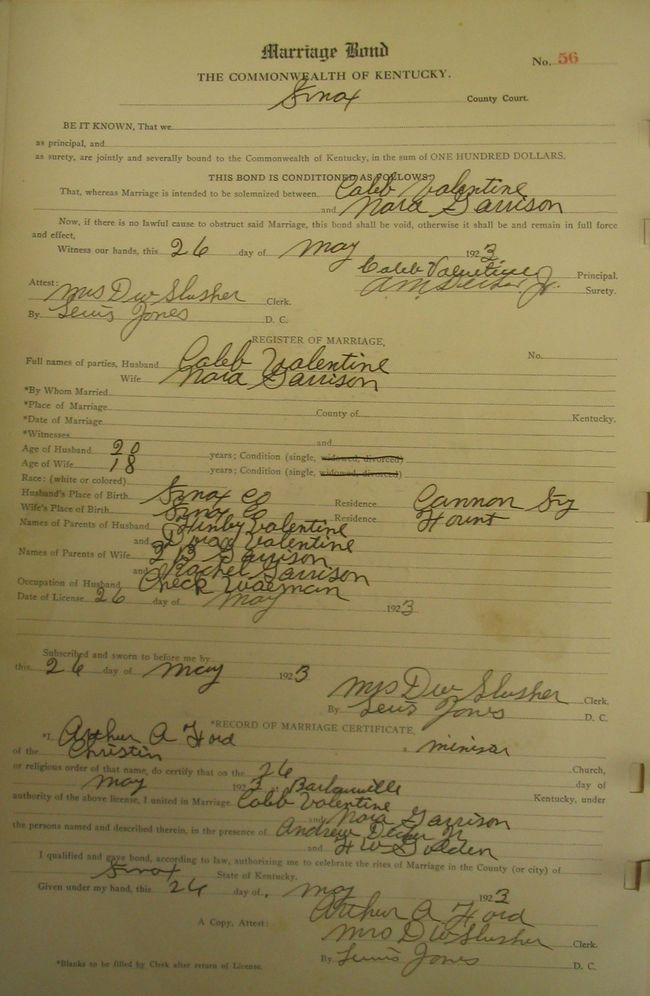 Marriage Bond
No. 56
THE COMMONWEALTH OF KENTUCKY.
Knox County Court.
BE IT KNOWN, That we
as principal, and
as surety, are jointly and severally bound to the Commonwealth of Kentucky, in the sum of ONE HUNDRED DOLLARS.
THIS BOND IS CONDITIONED AS FOLLOWS:
That, whereas Marriage is intended to be solemnized between Caleb Valentine
and Nora Garrison
Now, if there is no lawful cause to obstruct said Marriage, this bond shall be void, otherwise it shall be and remain in full force
and effect,
Witness our hands, this 26 day of May 1923
Caleb Valentine Principal.
Attest: Jr. Surety.
Mrs D W Slusher Clerk.
By Lewis Jones D. C.
REGISTER OF MARRIAGE,
Full names of parties, Husband Caleb Valentine No.
Wife Nora Garrison
*By Whom Married
*Place of Marriage County of Kentucky.
*Date of Marriage
*Witnesses and
Age of Husband 20 years; Condition (single, widowed, divorced)
Age of Wife 18 years; Condition (single, widowed, divorced)
Race: (white or colored)
Husband's Place of Birth Knox Co Residence Cannon Ky
Wife's Place of Birth Knox Co Residence
Names of Parents of Husband Valentine
and Valentine
Names of Parents of Wife Garrison
and Rachel Garrison
Occupation of Husband Check Waeman
Date of License 26 day of May 1923
Subscribed and sworn to before me by
this 26 day of May 1923
Mrs D W Slusher Clerk.
By Lewis Jones D. C.
*RECORD OF MARRIAGE CERTIFICATE,
*I, Arthur A Ford a minisar
of the Christin Church,
or religious order of that name, do certify that on the 26 day of
May 192 at Barbourville Kentucky, under
authority of the above license, I united in Marriage Caleb Valentine
and Nora Garrison
the persons named and described therein, in the presence of Andrew Jr
and H W Golden
I qualified and gave bond, according to law, authorizing me to celebrate the rites of Marriage in the County (or city) of
Knox State of Kentucky.
Given under my hand, this 26 day of May 1923
Arthur A Ford
A Copy, Attest: Mrs D W Slusher Clerk.
*Blanks to be filled by Clerk after return of License. By Lewis Jones D. C.